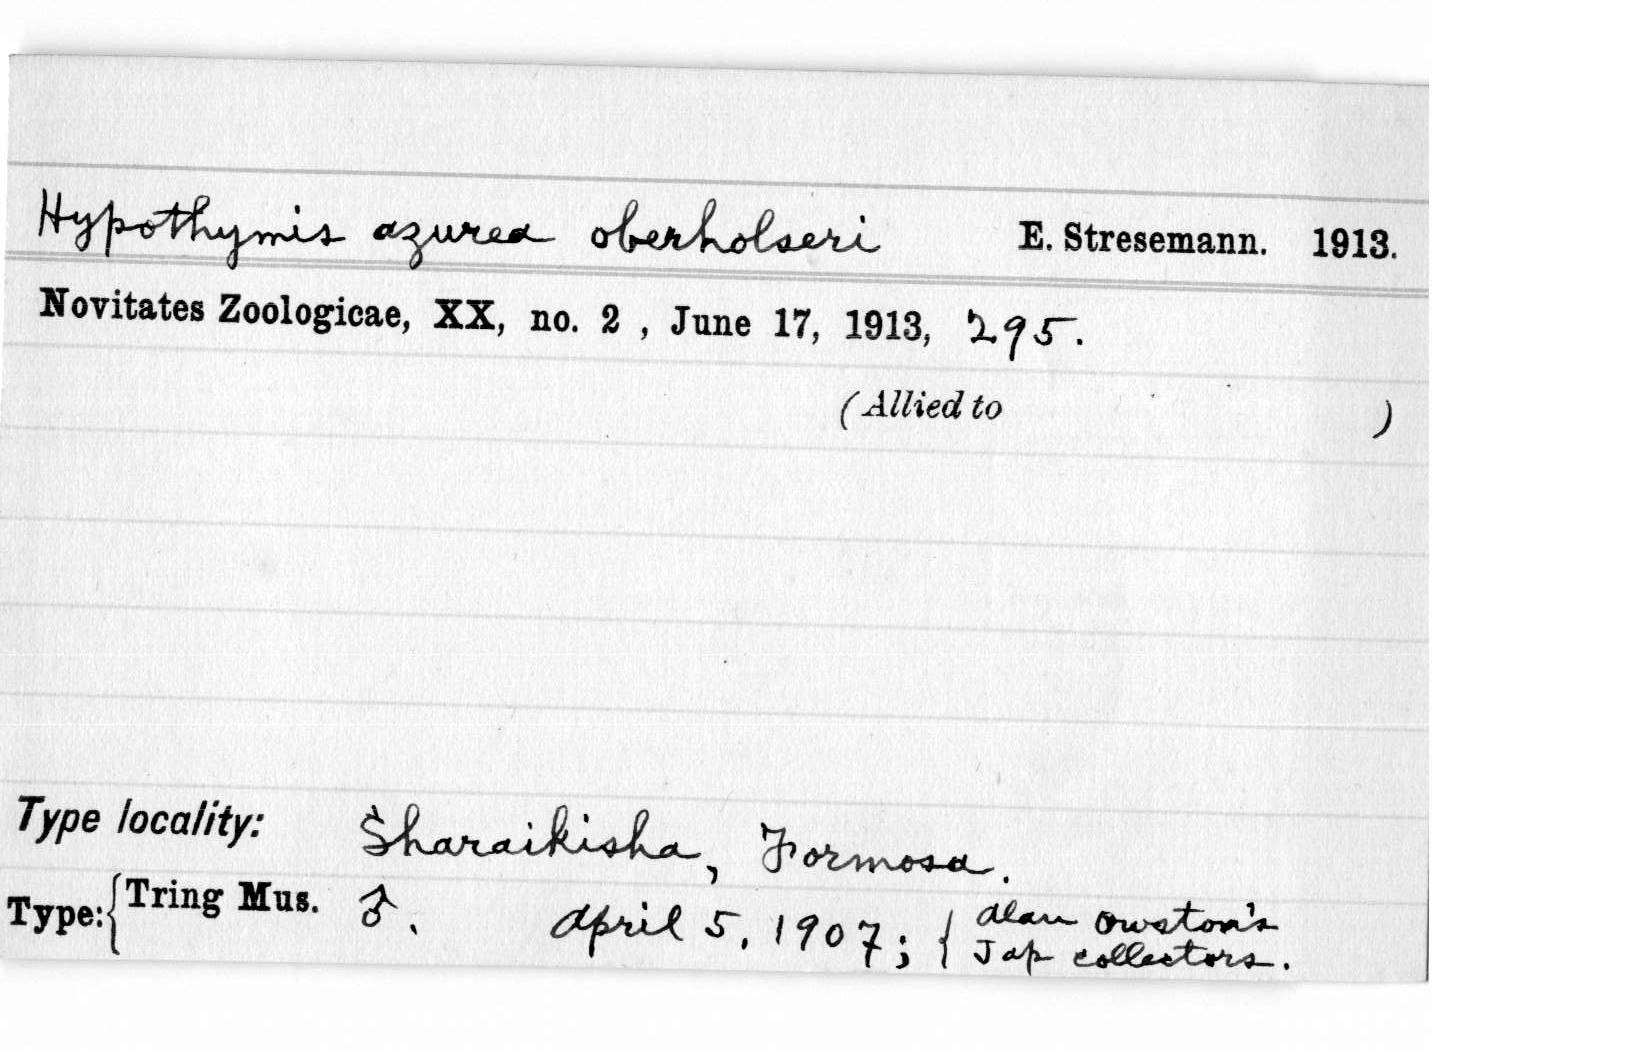 Hypothymis azurea oberholseri E. Stresemann. 1913.
Novitates Zoologicae, XX, no. 2 , June 17, 1913, 295.
(Allied to )
Type locality: Sharaikisha, Formosa.
Type: { Tring Mus. ♂. April 5, 1907; { Alan Owston's
Jap collectors.